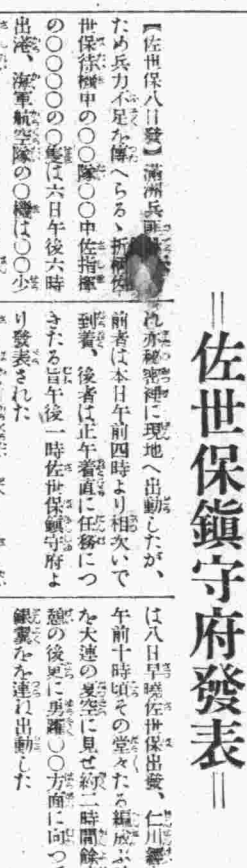 ＝佐世保鎭守府發表＝
【佐世保八日發】滿洲兵
ため兵力不足を傳へらるゝ折柄佐
世保待機中の〇〇隊〇〇中佐指揮
の〇〇〇〇の〇隻は六日午後六時
出港、海軍航空隊の〇機は〇〇少
れ亦秘密裡に現地へ出動したが、
前者は本日午前四時より相次いで
到着、後者は正午着直に任務につ
きたる旨午後一時佐世保鎭守府よ
り發表された
は八日早曉佐世保出發、仁川經
午前十時頃その堂々たる編成ぶ
を大連の夏空に見せ約一時間餘
憩の後更に勇躍〇〇方面に向つ
銀翼をを連ね出動した